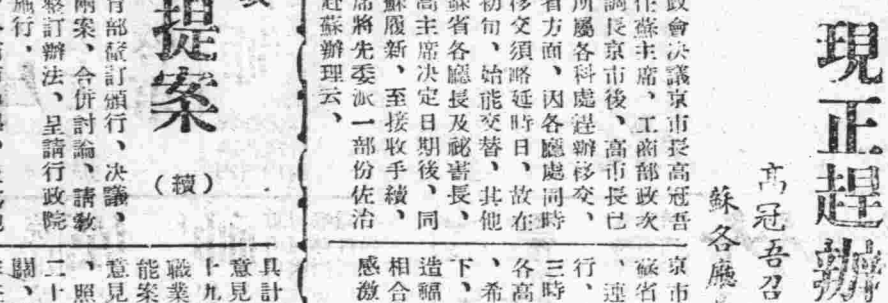 現正趕辦
高冠吾召
蘇各廳
政會決議京市長高冠吾
任蘇主席、工商部政次
調長京市後、高市長已
所屬各科處趕辦移交、
省方面、因各廳處同時
移交須略延時日、故在
初旬、始能交替、其他
蘇省各廳長及祕書長、
高主席決定日期後、同
蘇履新、至接收手續、
席將先委派一部份佐治
赴蘇辦理云、
京市
蘇省
、連
行、
三時
各高
、希
下、
造福
相合
感激
提案
（續）
育部釐訂頒行、決議、
兩案、合併討論、請教
整訂辦法、呈請行政院
施行、
具計
意見
十九
職業
能案
意見
、照
二十
關、